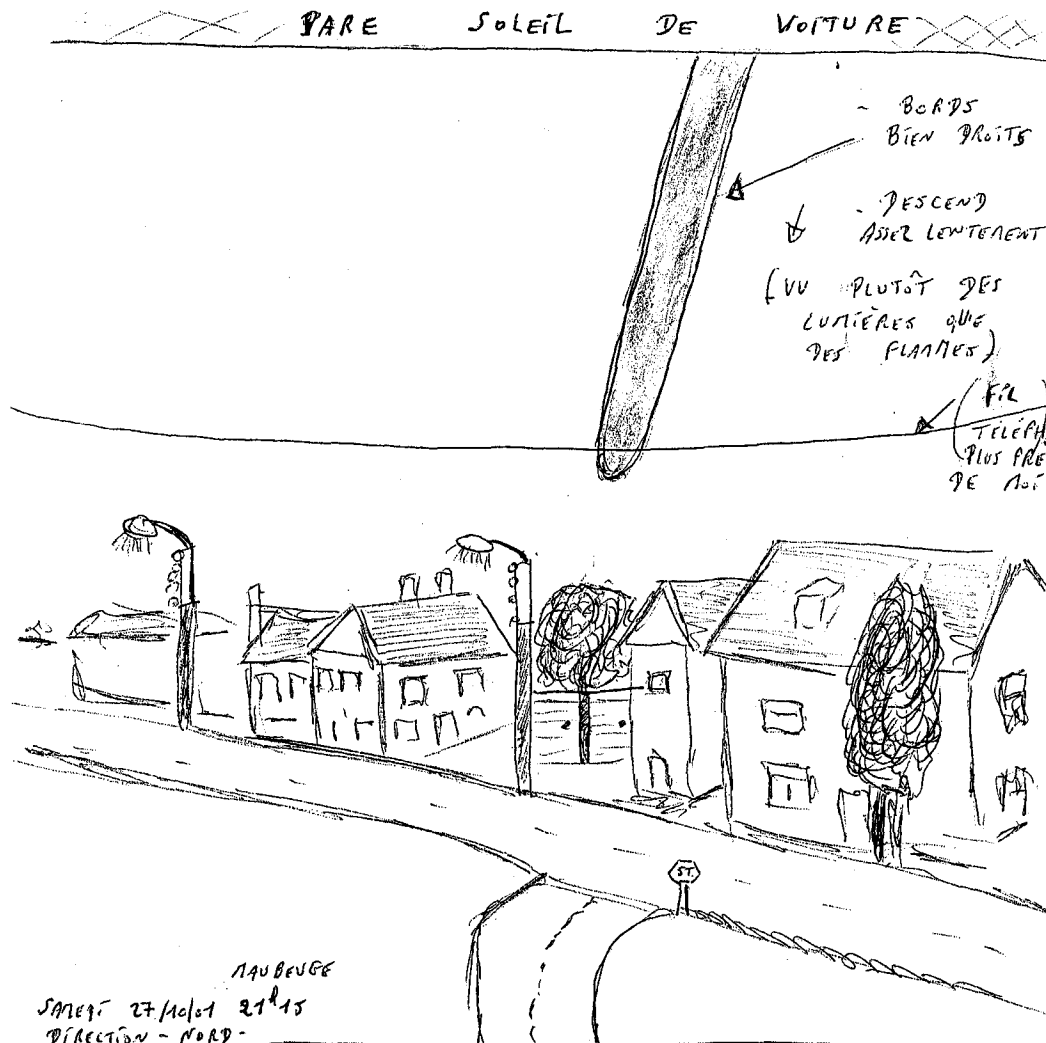 PARE SOLEIL DE VOITURE
- BORDS
BIEN DROITS
- DESCEND
ASSEZ LENTEMENT
(VU PLUTÔT DES
LUMIÈRES QUE
DES FLAMMES)
(FIL
TÉLÉPH
PLUS PRE
DE MOI
ST.
MAUBEUGE
SAMEDI 27/10/01 21h15
DIRECTION - NORD -